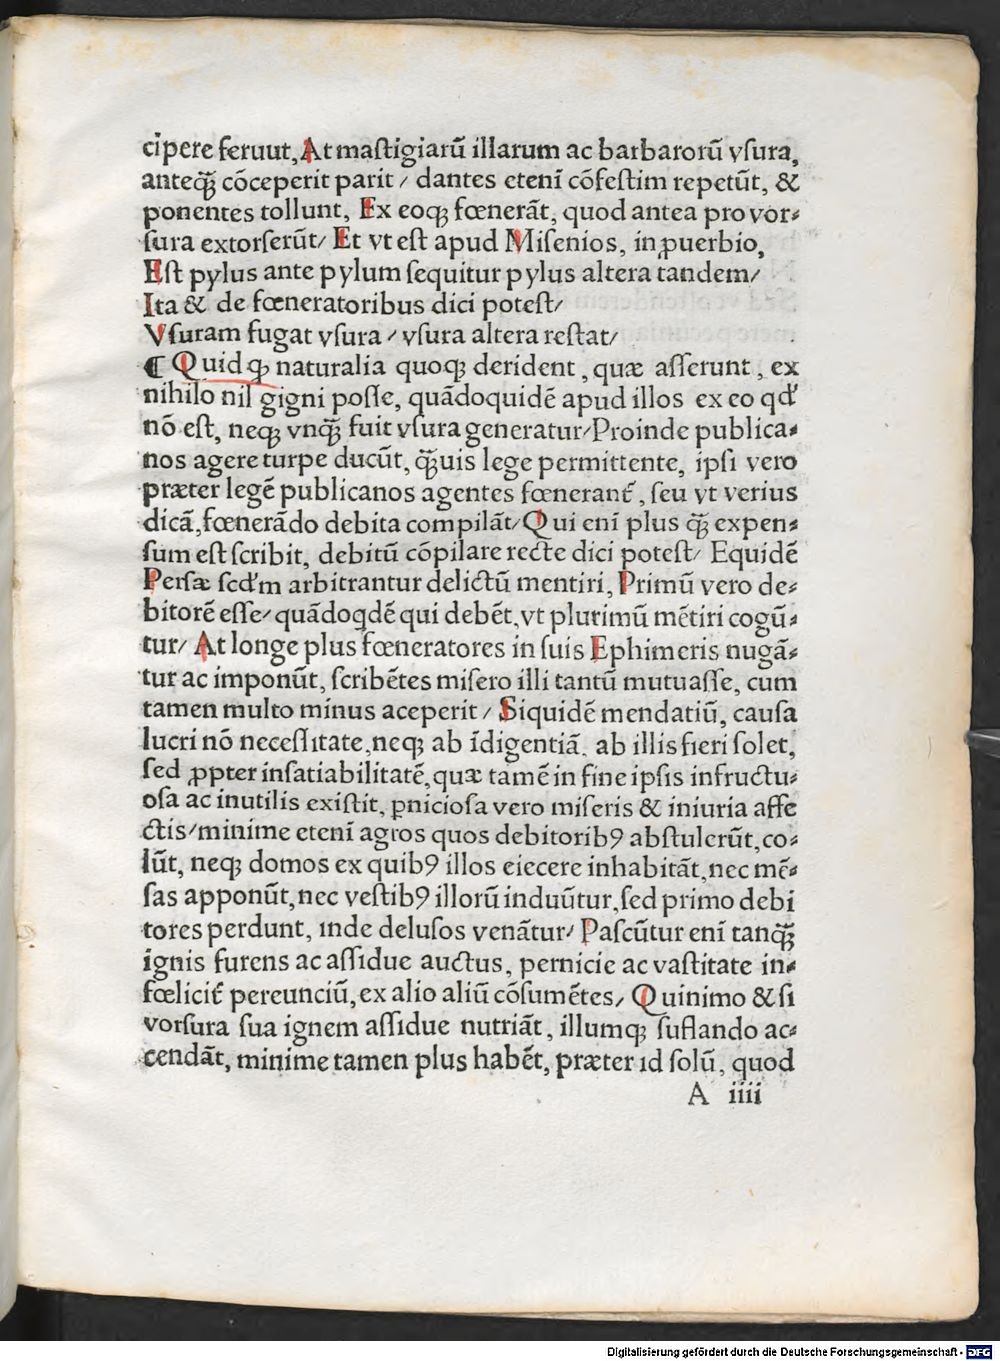 cipere feruut, At mastigiarũ illarum ac barbarorũ vsura,
anteq̃ cõceperit parit / dantes etenĩ cõfestim repetũt, &
ponentes tollunt, Ex eoqꝫ fœnerãt, quod antea pro vor-
sura extorserũt/ Et vt est apud Misenios, in ꝓuerbio,
Est pylus ante pylum sequitur pylus altera tandem/
Ita & de fœneratoribus dici potest/
Vsuram fugat vsura / vsura altera restat/
¶ Quid qꝫ naturalia quoqꝫ derident, quæ asserunt, ex
nihilo nil gigni posse, quãdoquidẽ apud illos ex eo qd'
nõ est, neqꝫ vnq̃ fuit vsura generatur/ Proinde publica-
nos agere turpe ducũt, q̃uis lege permittente, ipsi vero
præter legẽ publicanos agentes fœnerant᷑, seu vt verius
dicã, fœnerãdo debita compilãt/ Qui enĩ plus q̃ expen-
sum est scribit, debitũ cõpilare recte dici potest/ Equidẽ
Persæ scd'm arbitrantur delictũ mentiri, Primũ vero de-
bitorẽ esse/ quãdoqdẽ qui debẽt, vt plurimũ mẽtiri cogũ-
tur/ At longe plus fœneratores in suis Ephimeris nugã-
tur ac imponũt, scribẽtes misero illi tantũ mutuasse, cum
tamen multo minus aceperit / Siquidẽ mendatiũ, causa
lucri nõ necessitate, neqꝫ ab ĩdigentiã. ab illis fieri solet,
sed ꝓpter insatiabilitatẽ, quæ tamẽ in fine ipsis infructu-
osa ac inutilis existit, ꝑniciosa vero miseris & iniuria affe
ctis/ minime etenĩ agros quos debitoribꝰ abstulerũt, co-
lũt, neqꝫ domos ex quibꝰ illos eiecere inhabitãt, nec mẽ-
sas apponũt, nec vestibꝰ illorũ induũtur, sed primo debi
tores perdunt, inde delusos venãtur/ Pascũtur enĩ tanq̃
ignis furens ac assidue auctus, pernicie ac vastitate in-
fœlicit᷑ pereunciũ, ex alio aliũ cõsumẽtes/ Quinimo & si
vorsura sua ignem assidue nutriãt, illumqꝫ suflando ac-
cendãt, minime tamen plus habẽt, præter id solũ, quod
A iiii
Digitalisierung gefördert durch die Deutsche Forschungsgemeinschaft - DFG